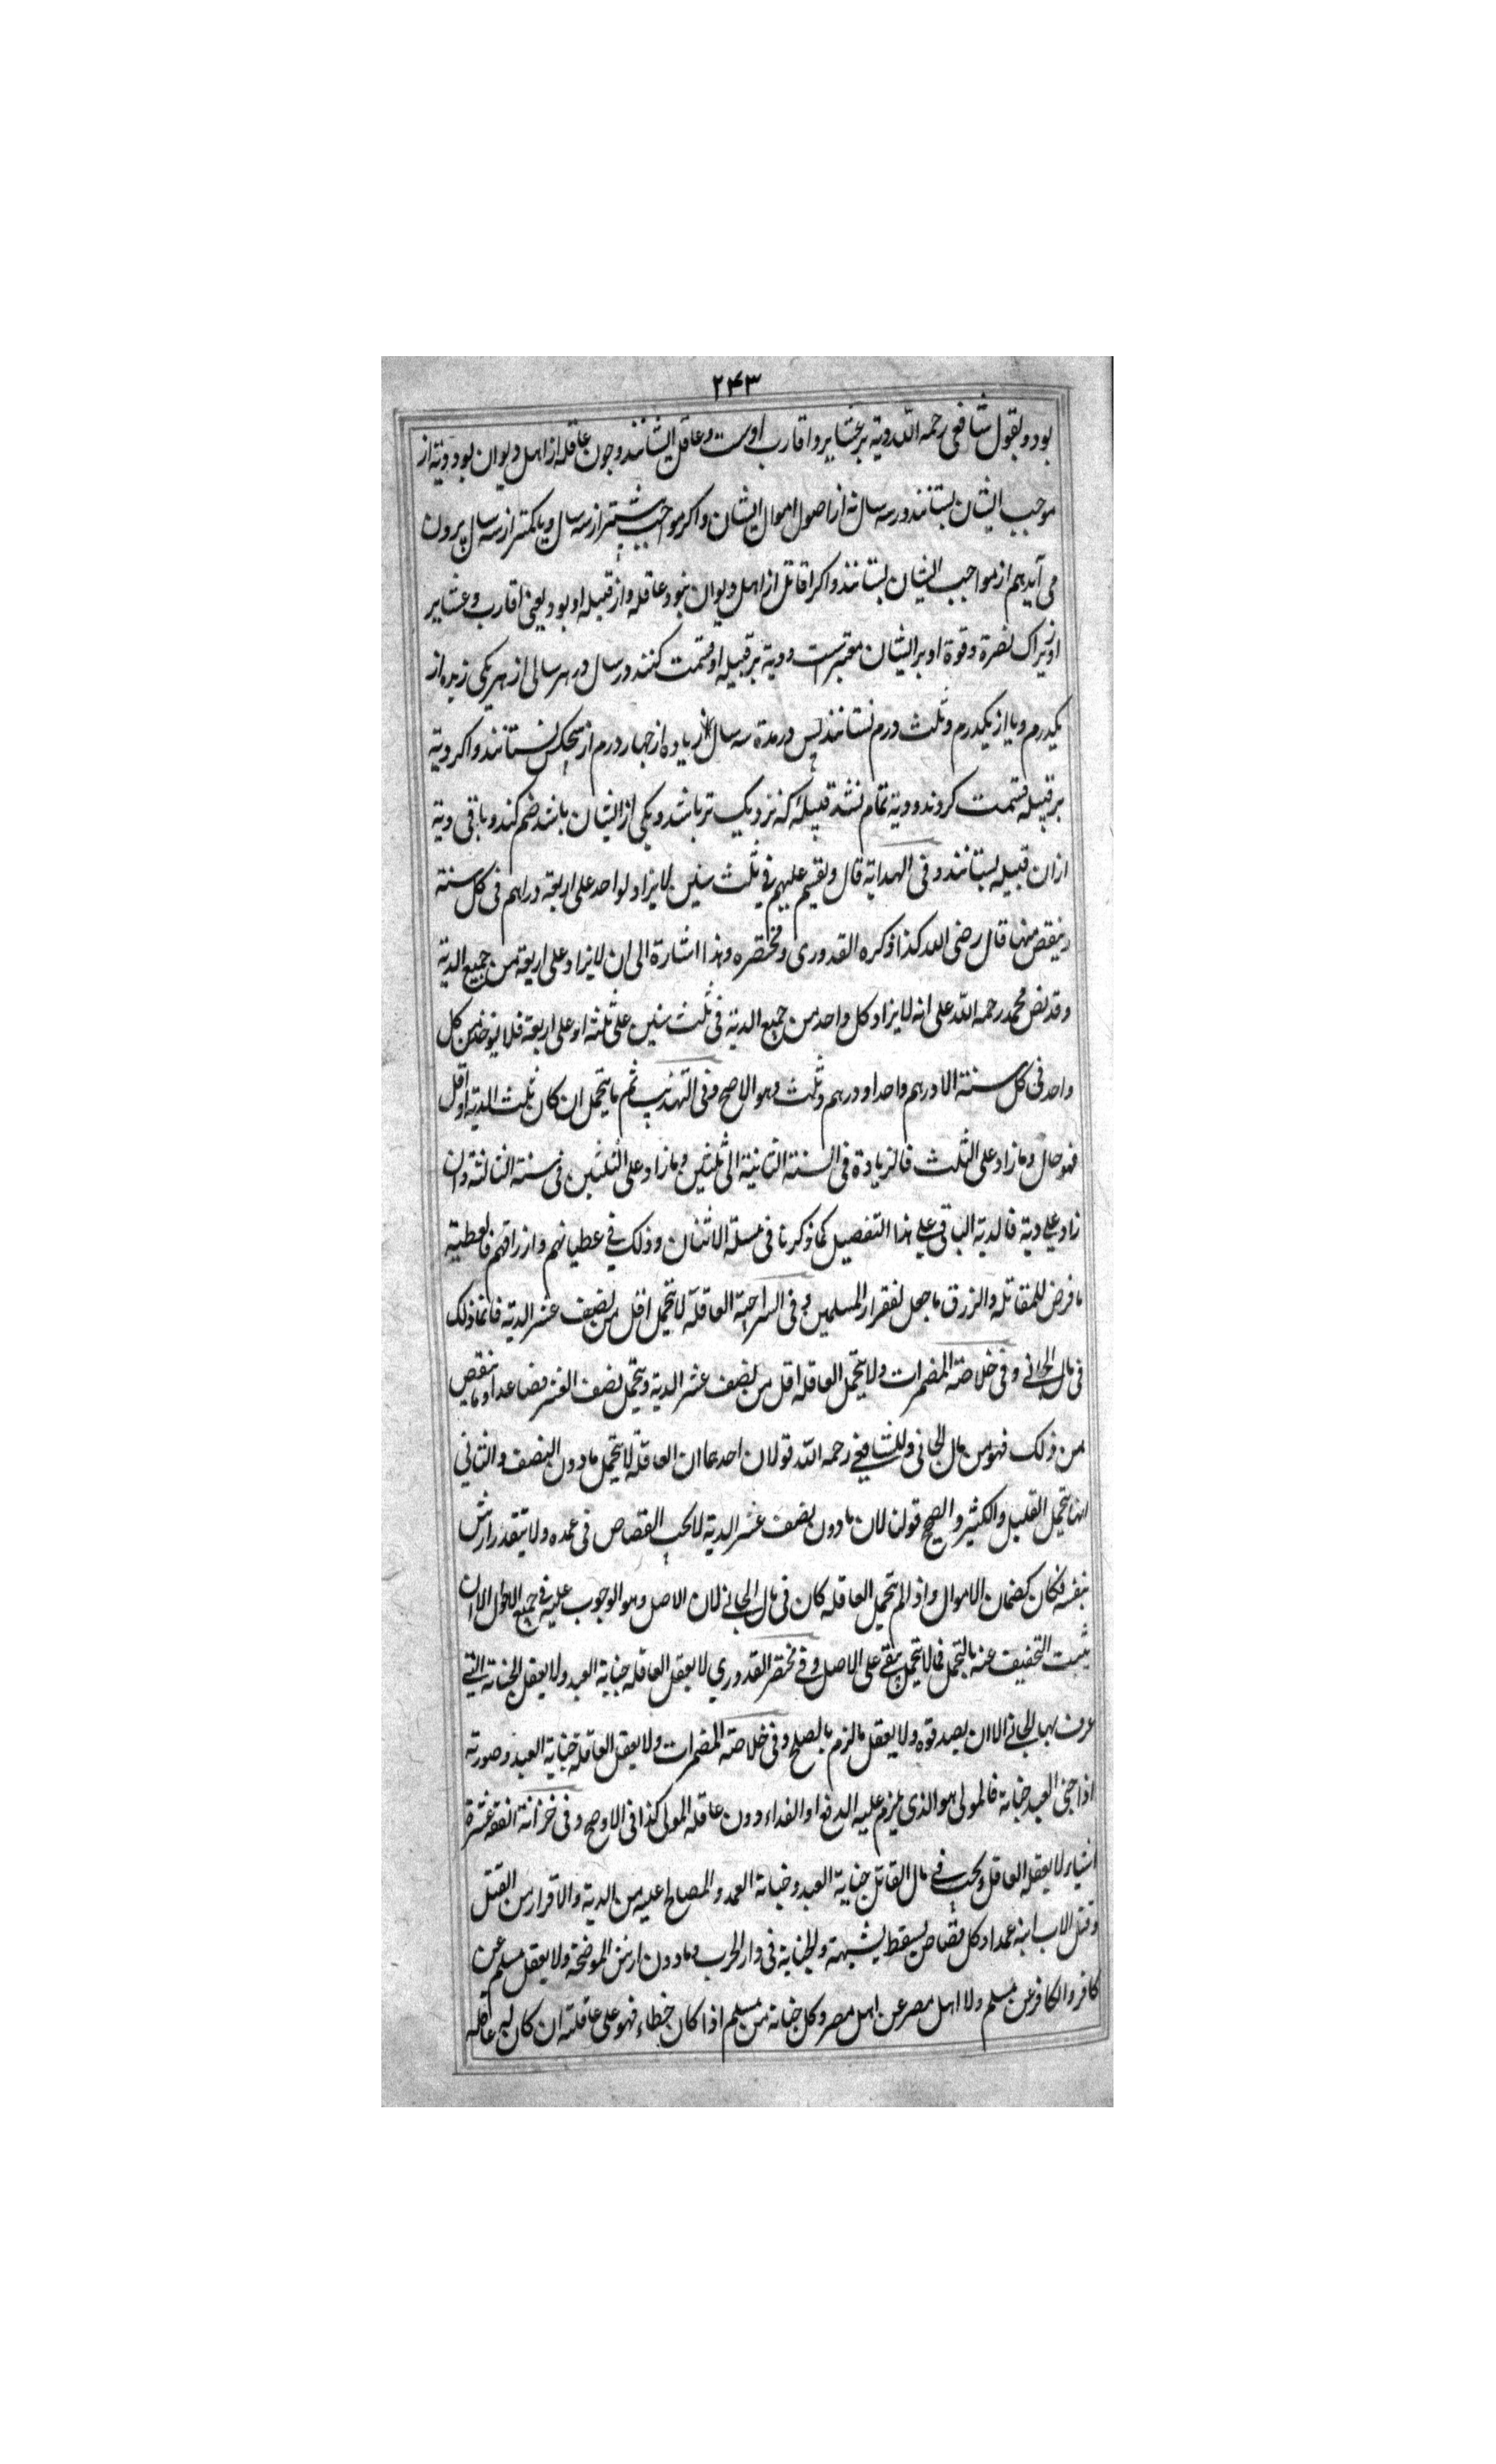 ۲۴۳
بود و بقول شافعی رحمه الله دیة بر عشایر و اقارب اوست و عاقل ایشانند و چون عاقله از اهل دیوان بود دیة از
موجب ایشان بستانند در سه سال نه از اصول اموال ایشان و اکر مواجب بیشتر از سه سال و یا کمتر از سه سال برون
می آید هم از مواجب ایشان بستانند و اکر قاتل از اهل دیوان نبود عاقله و از قبیله او بود یعنی اقارب و عشایر
او زیراک نصرة و قوة او بر ایشان معتبرست و دیة بر قبیله او قسمت کنند در سال در هر سالی از هر یکی زیده از
یکدرم و یا از یکدرم و ثلث درم نستانند پس در مدة سه سال زیاده از جهار درم از هیچکس نستانند و اکر دیة
بر قبیله قسمت کردند و دیة تمام نشد قبیلهٔ که نزدیک تر باشد و یکی از ایشان باشد ضم کند و باقی دیة
ازان قبیله بستانند و فی الهدایة قال و یقسم علیهم فی ثلث سنین لا یزاد لواحد علی اربعة دراهم فی کل سنة
و ینقص منها قال رضی الله کذا ذکره القدوری و مختصره و هذا اشارة الی ان لا یزاد علی اربعة من جمیع الدیة
و قد نص محمد رحمه الله علی انه لا یزاد کل واحد من جمیع الدیة فی ثلث سنین علی ثلثة او علی اربعة فلا یوخذ من کل
واحد فی کل سنة الا درهم واحد او درهم و ثلث و هو الاصح و فی التهذیب ثم ما یتحمل ان کان ثلث الدیة او اقل
فهو حال و ما زاد علی الثلث فالزیادة فی السنة الثانیة الی ثلثین و ما زاد علی الثلثین فی سنة الثالثة و ان
زاد علی دیة فالدیة الباقی علی هذا التفصیل کما ذکرنا فی مسئلة الاثنان و ذلک فی عطیاتهم و ارزاقهم فالعطیة
ما فرض للمقاتلة و الرزق ما جعل لفقراء المسلمین و فی السراجیة العاقلة لا یتحمل اقل من نصف عشر الدیة فانما ذلک
فی مال الجانی و فی خلاصة المضمرات و لا یتحمل العاقله اقل من نصف عشر الدیة و یتحمل نصف العشر فصاعدا و ما ینقص
من ذلک فهو من مال الجانی و للشافعی رحمه الله قولان احدهما ان العاقلة لا یتحمل ما دون النصف و الثانی
انها یتحمل القلیل و الکثیر و الصحیح قولنا لان ما دون نصف عشر الدیة لا یجب القصاص فی عمده و لا یتقدر ارش
بنفسه فکان کضمان الاموال و اذا لم یتحمل العاقله کان فی مال الجانی لان الاصل و هو الوجوب علیه فی جمیع الاحوال الا ان
یثبت التخفیف عنه بالتحمل فما لا یتحمل یبقی علی الاصل و فی مختصر القدوری لا یعقل العاقله جنایة العبد و لا یعقل الجنایة التی
عرف بها الجانی الا ان یصدقوه و لا یعقل ما لزم بالصلح و فی خلاصة المضمرات و لا یعقل العاقلة جنایة العبد و صورته
اذا جنی العبد جنایة فالمولی هو الذی یلزم علیه الدفع او الفداء دون عاقله المولی کذا فی الاوضح و فی خزانة الفقه عشرة
اشیاء لا یعقله العاقل و یجب فی مال القاتل جنایة العبد و جنایة العمد و المصالح علیه من الدیة و الاقرار من القتل
و قتل الاب ابنه عمدا و کل قصاص یسقط بشبهة و الجنایة فی دار الحرب و ما دون ارش الموضحة و لا یعقل مسلم عن
کافر و الکافر عن مسلم و لا اهل مصر عن اهل مصر و کل جنایة من مسلم اذا کان خطاء فهو علی عاقلته ان کان له عاقله